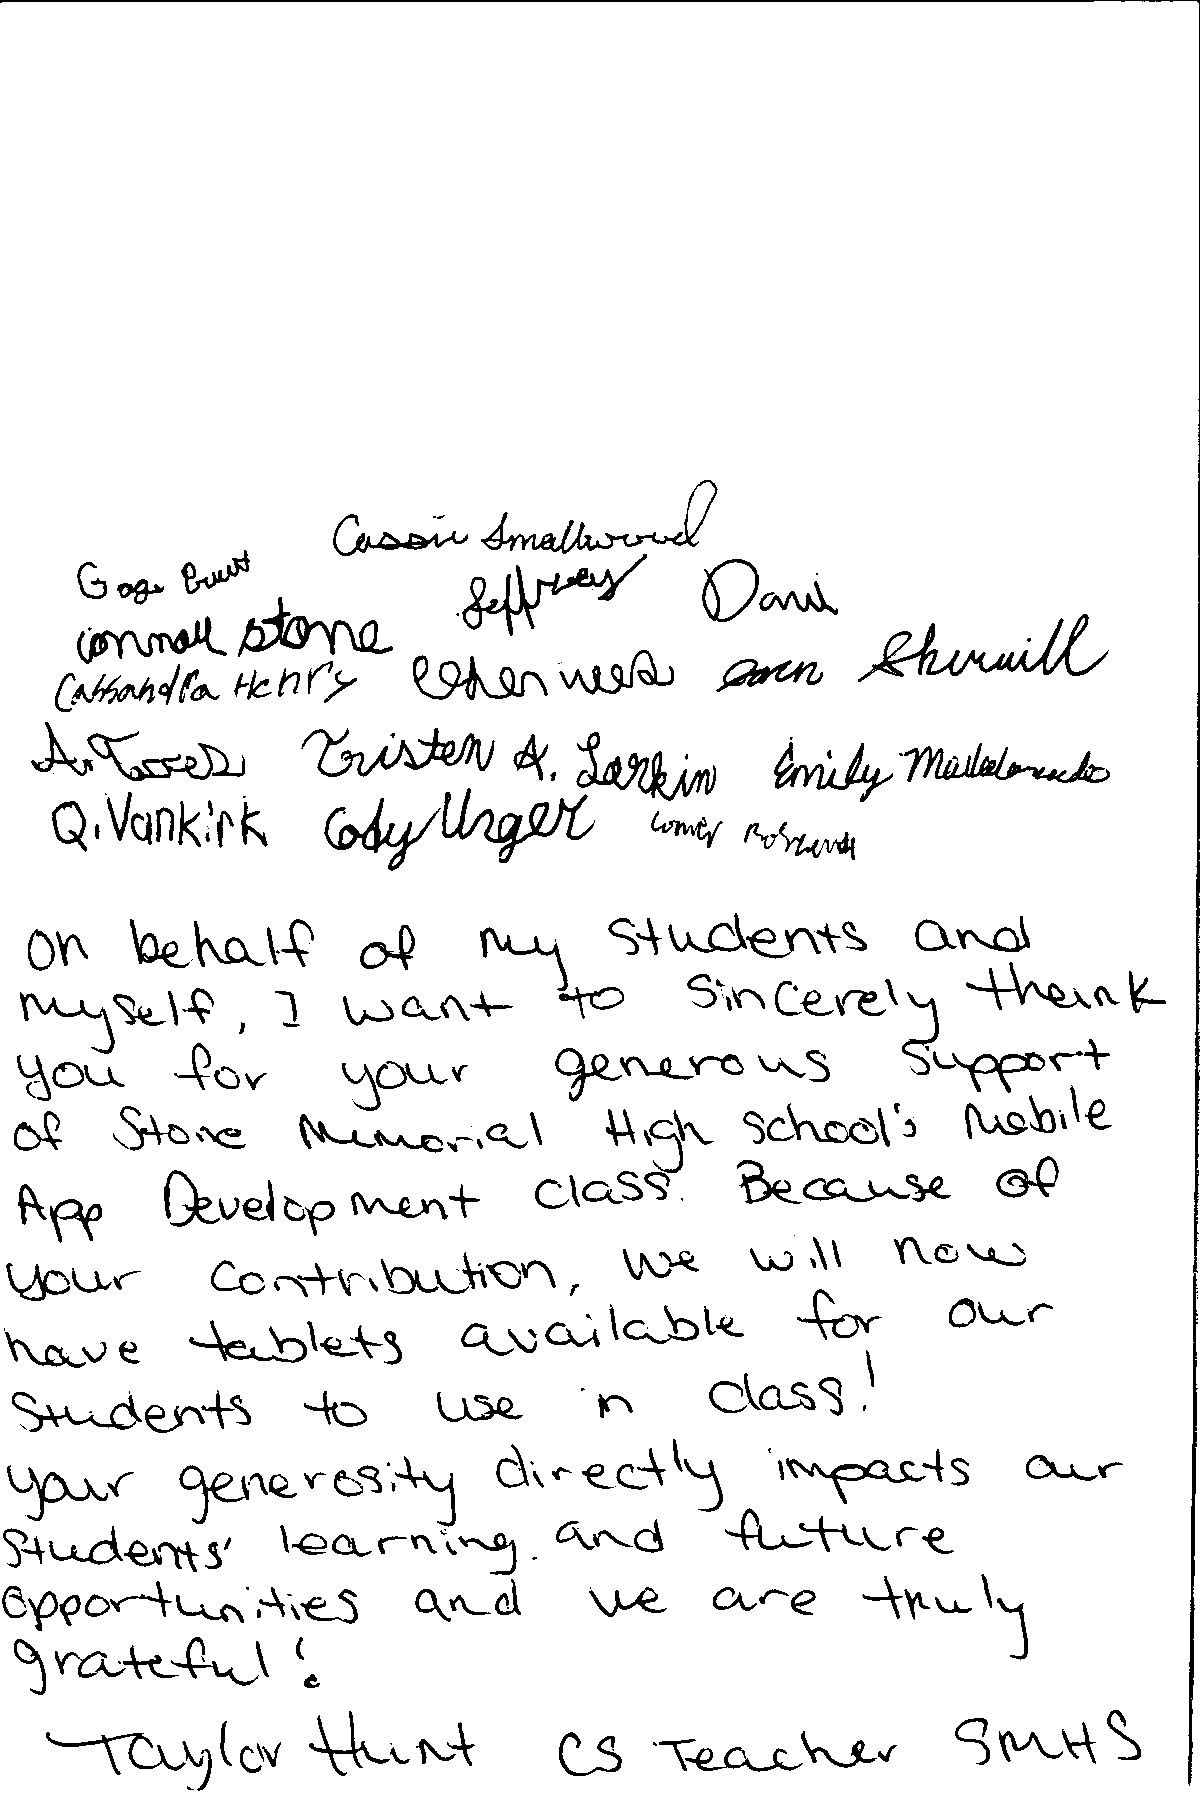 Cassie Smallwood
Gage
Jeffrey
stone
Cassandra Henry Sherwill
A. Torres Tristen A. Larkin Emily Maldonado
Q. Vankirk Cody Unger
On behalf of my students and
myself, I want to sincerely thank
you for your generous support
of Stone Memorial High School's Mobile
App Development class. Because of
your contribution, we will now
have tablets available for our
students to use in class!
Your generosity directly impacts our
students' learning and future
opportunities and we are truly
grateful!
Taylor Hunt CS Teacher SMHS